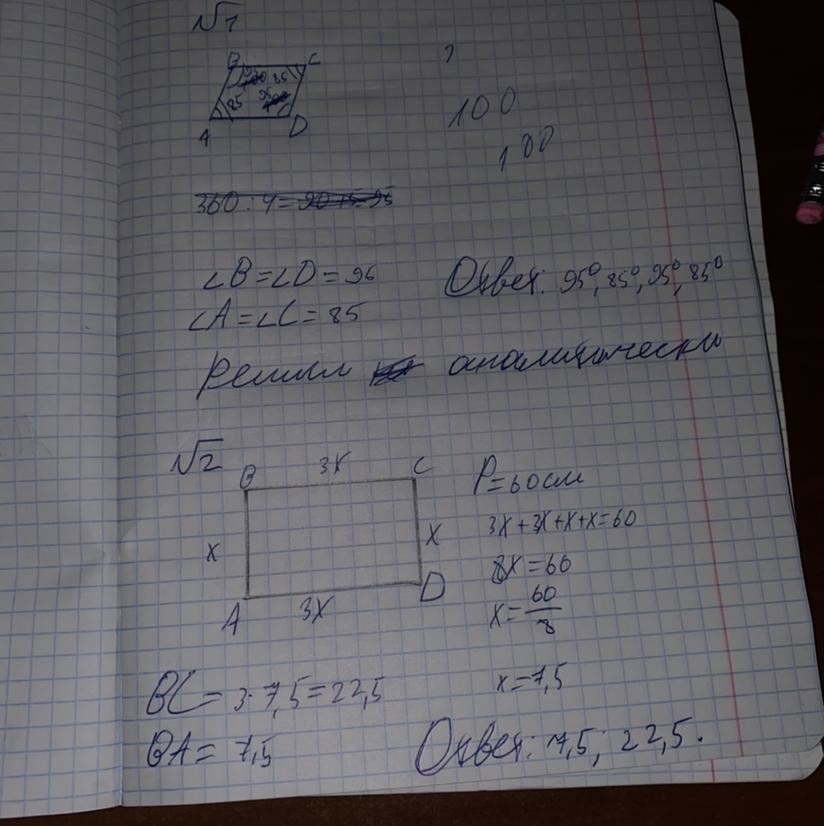 √1
B C
85
85 95
A D
?
100
100
360 : 4 = 90 + 5 = 95
∠B = ∠D = 95
∠A = ∠C = 85
Ответ: 95°, 85°, 95°, 85°
Решил аналитически
√2
B 3x C
x x
A 3x D
P = 60 см
3x + 3x + x + x = 60
8x = 60
x = 60/8
x = 7,5
BC = 3 · 7,5 = 22,5
BA = 7,5
Ответ: 7,5; 22,5.